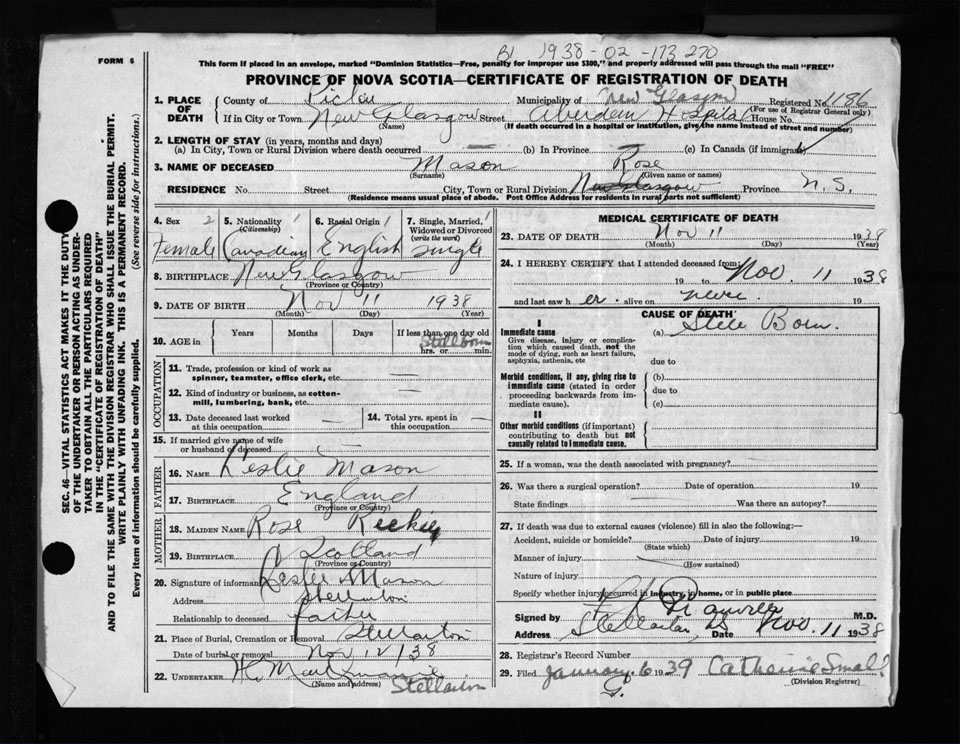 B1 1938-02-173270
FORM 6
This form if placed in an envelope, marked "Dominion Statistics—Free, penalty for improper use $300," and properly addressed will pass through the mail "FREE"
PROVINCE OF NOVA SCOTIA—CERTIFICATE OF REGISTRATION OF DEATH
SEC. 46—VITAL STATISTICS ACT MAKES IT THE DUTY
OF THE UNDERTAKER OR PERSON ACTING AS UNDER-
TAKER TO OBTAIN ALL THE PARTICULARS REQUIRED
IN THE "CERTIFICATE OF REGISTRATION OF DEATH"
AND TO FILE THE SAME WITH THE DIVISION REGISTRAR WHO SHALL ISSUE THE BURIAL PERMIT.
WRITE PLAINLY WITH UNFADING INK. THIS IS A PERMANENT RECORD.
Every item of information should be carefully supplied. (See reverse side for instructions.)
1. PLACE OF DEATH
County of Pictou Municipality of New Glasgow Registered No. 1186
(For use of Registrar General only)
If in City or Town New Glasgow Street Aberdeen Hospital House No.
(Name) (If death occurred in a hospital or institution, give the name instead of street and number)
2. LENGTH OF STAY (in years, months and days)
(a) In City, Town or Rural Division where death occurred — (b) In Province — (c) In Canada (if immigrant)
3. NAME OF DECEASED Mason Rose
(Surname) (Given name or names)
RESIDENCE No. Street City, Town or Rural Division New Glasgow Province N.S.
(Residence means usual place of abode. Post Office Address for residents in rural parts not sufficient)
4. Sex 2 Female
5. Nationality 1 (Citizenship) Canadian
6. Racial Origin 1 English
7. Single, Married, 1 Widowed or Divorced (write the word) single
8. BIRTHPLACE New Glasgow
(Province or Country)
9. DATE OF BIRTH Nov 11 1938
(Month) (Day) (Year)
10. AGE in Years Months Days If less than one day old
Stillborn
hrs. or min.
OCCUPATION
11. Trade, profession or kind of work as spinner, teamster, office clerk, etc. —
12. Kind of industry or business, as cotton-mill, lumbering, bank, etc. —
13. Date deceased last worked at this occupation —
14. Total yrs. spent in this occupation —
15. If married give name of wife or husband of deceased —
FATHER
16. NAME Leslie Mason
17. BIRTHPLACE England
(Province or Country)
MOTHER
18. MAIDEN NAME Rose
19. BIRTHPLACE Scotland
(Province or Country)
20. Signature of informant Leslie A Mason
Address Stellarton
Relationship to deceased Father
21. Place of Burial, Cremation or Removal Stellarton
Date of burial or removal Nov 12/38
22. UNDERTAKER
(Name and address) Stellarton
MEDICAL CERTIFICATE OF DEATH
23. DATE OF DEATH Nov 11 1938
(Month) (Day) (Year)
24. I HEREBY CERTIFY that I attended deceased from:
19 to Nov. 11 1938
and last saw h er alive on never 19
CAUSE OF DEATH
I
Immediate cause
Give disease, injury or complication which caused death, not the mode of dying, such as heart failure, asphyxia, asthenia, etc
(a) Still Born.
due to
Morbid conditions, if any, giving rise to immediate cause (stated in order proceeding backwards from immediate cause).
(b)
due to
(c)
II
Other morbid conditions (if important) contributing to death but not causally related to immediate cause.
25. If a woman, was the death associated with pregnancy?
26. Was there a surgical operation? Date of operation 19
State findings Was there an autopsy?
27. If death was due to external causes (violence) fill in also the following:—
Accident, suicide or homicide? Date of injury 19
(State which)
Manner of injury
(How sustained)
Nature of injury
Specify whether injury occurred in industry, in home, or in public place
Signed by M.D.
Address Stellarton, NS Date Nov. 11 1938
28. Registrar's Record Number
29. Filed January 6 1939 Catherine Small
(Division Registrar)